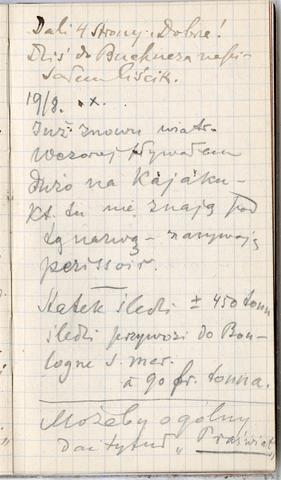 Dali 4 strony. Dobre!
Dziś do Buchnera napi-
sałem liścik.
19/8. x.
Już znowu wiatr.
Wczoraj pływałem
dużo na Kajaku -
kt. tu nie znają pod
tą nazwą - nazywają
perissoir.
Statek śledzi ± 450 tonn
śledzi przywozi do Bou-
logne s. mer.
a 90 fr. tonna.
Możeby ogólny
dać tytuł „Praświat"